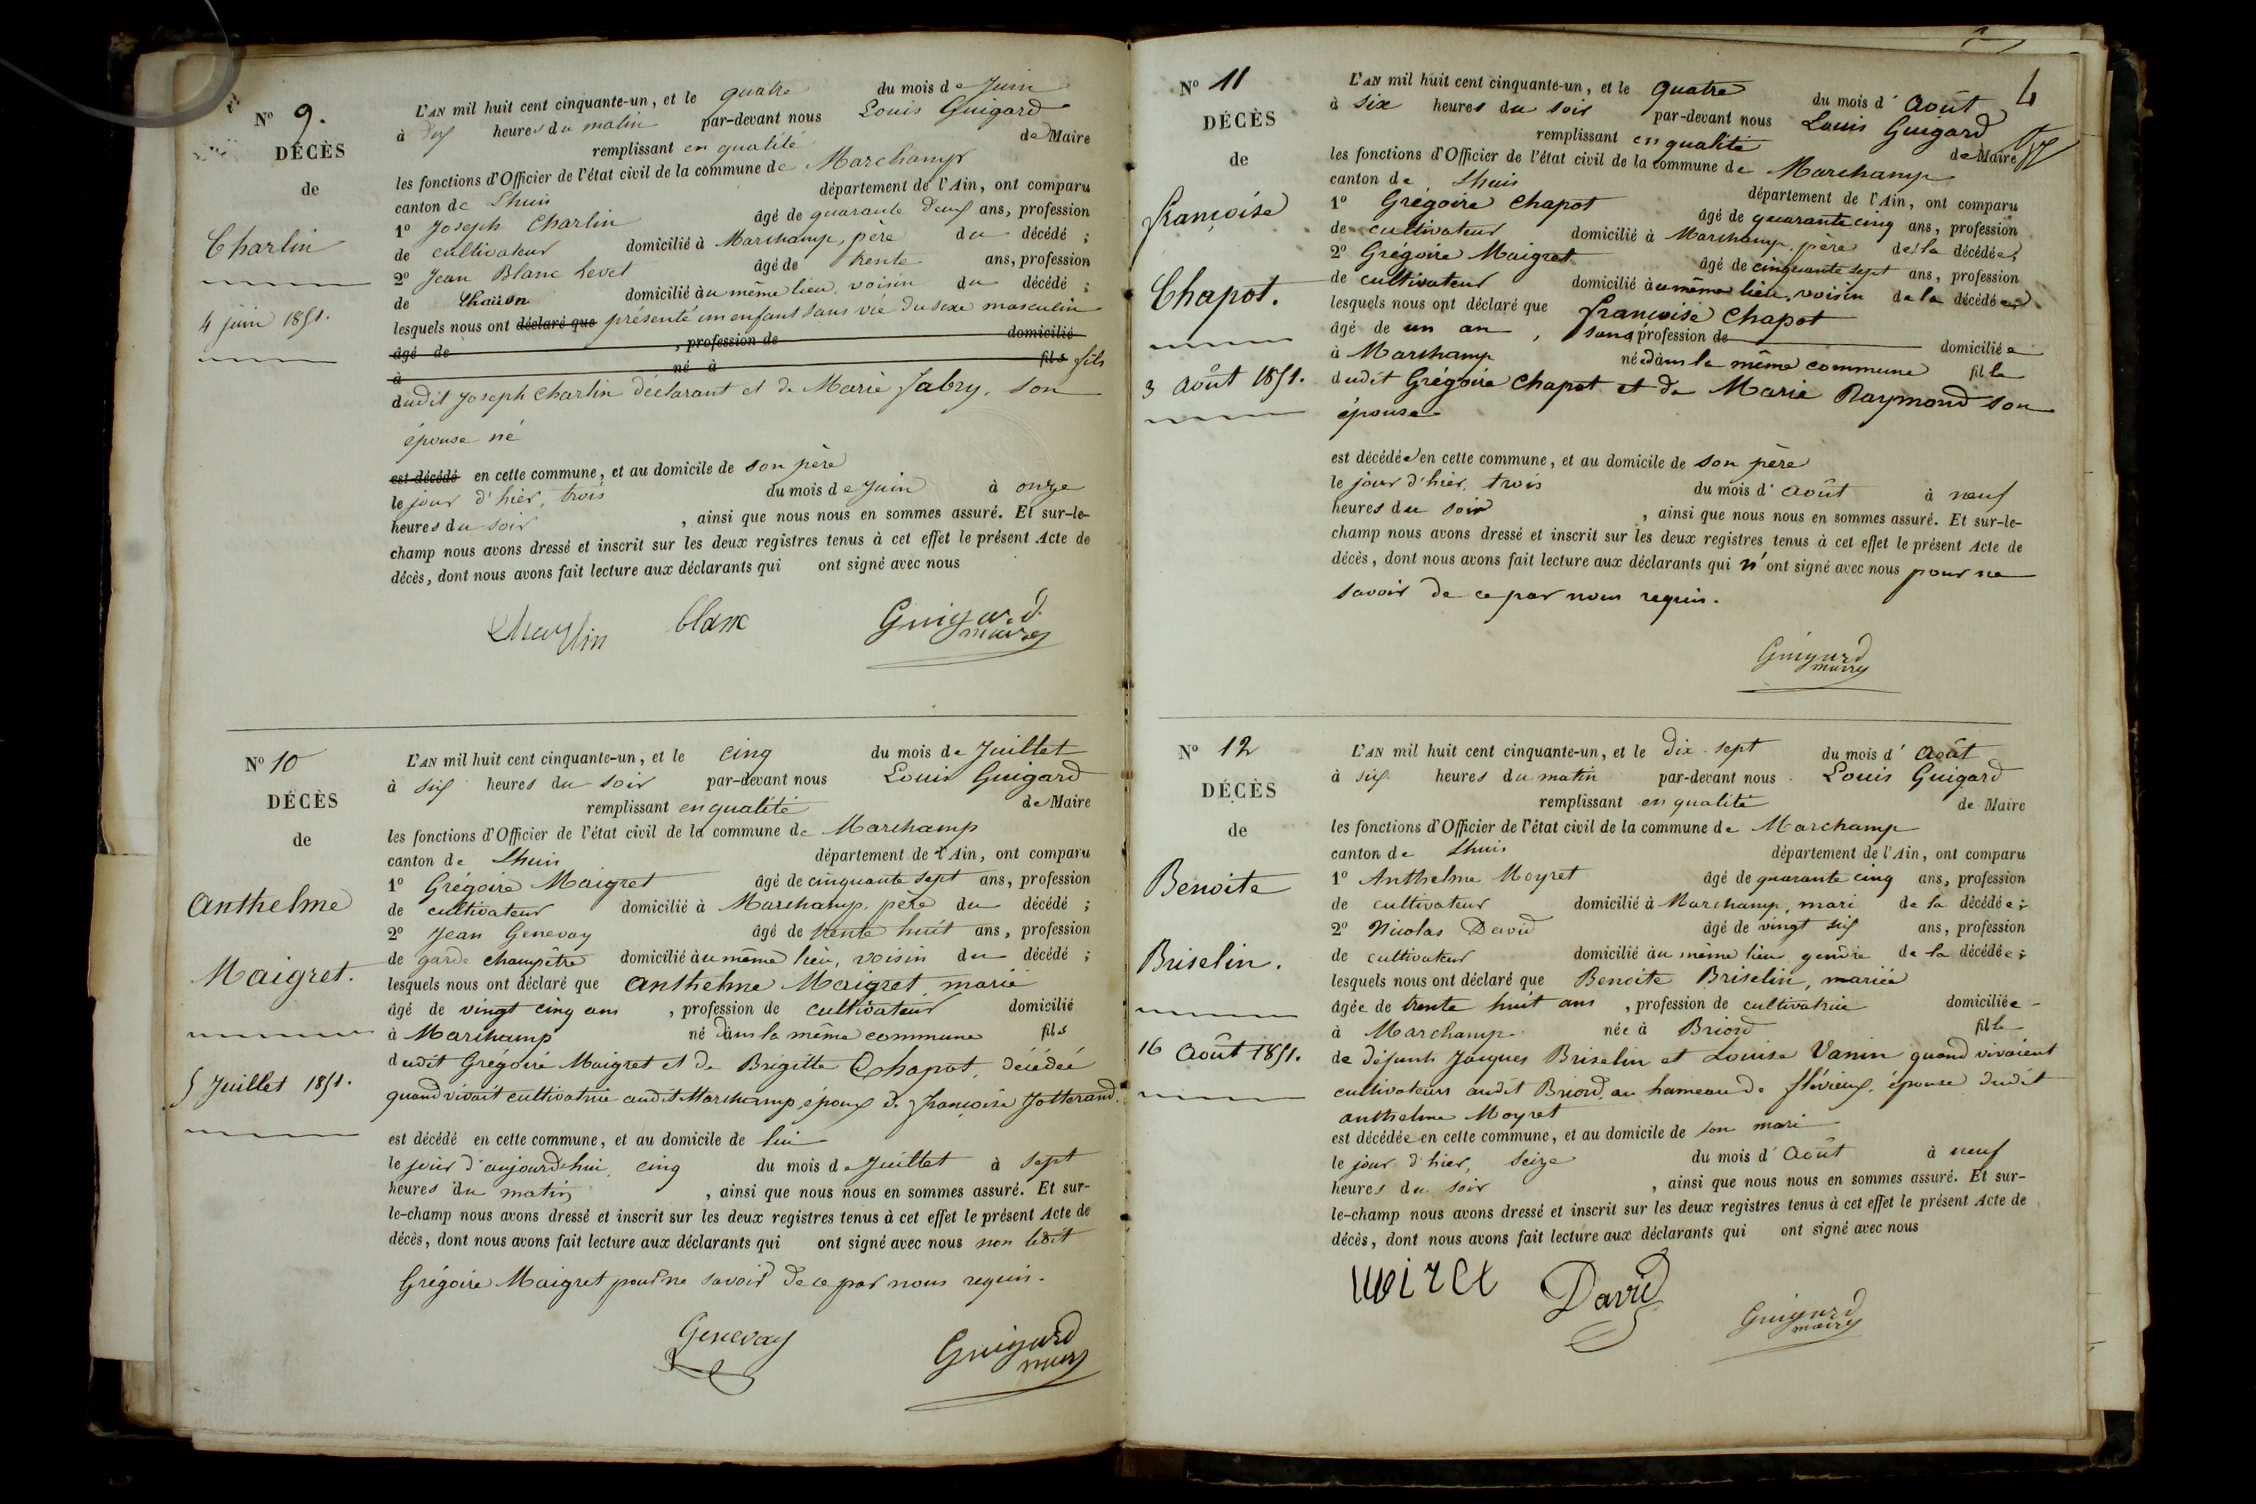 No 9.
DÉCÈS
de
Charlin
4 juin 1851.
L'AN mil huit cent cinquante-un, et le quatre du mois de Juin
à dix heures du matin par-devant nous Louis Guigard
remplissant en qualité de Maire
les fonctions d'Officier de l'état civil de la commune de Marchamp
canton de Lhuis département de l'Ain, ont comparu
1o Joseph Charlin âgé de quarante deux ans, profession
de cultivateur domicilié à Marchamp, père du décédé ;
2o Jean Blanc Levet âgé de trente ans, profession
de domicilié au même lieu, voisin du décédé ;
lesquels nous ont déclaré que présenté un enfant sans vie du sexe masculin
âgé de , profession de domicilié
à né à fils fils
dudit Joseph Charlin déclarant et de Marie Jabry, son
épouse né
est décédé en cette commune, et au domicile de son père
le jour d'hier, trois du mois de Juin à onze
heures du soir , ainsi que nous nous en sommes assuré. Et sur-le-
champ nous avons dressé et inscrit sur les deux registres tenus à cet effet le présent Acte de
décès, dont nous avons fait lecture aux déclarants qui ont signé avec nous
Charlin blanc Guigard
maire
No 10
DÉCÈS
de
Anthelme
Maigret.
5 Juillet 1851.
L'AN mil huit cent cinquante-un, et le cinq du mois de Juillet
à six heures du soir par-devant nous Louis Guigard
remplissant en qualité de Maire
les fonctions d'Officier de l'état civil de la commune de Marchamp
canton de Lhuis département de l'Ain, ont comparu
1o Grégoire Maigret âgé de cinquante sept ans, profession
de cultivateur domicilié à Marchamp, père du décédé ;
2o Jean Genevay âgé de trente huit ans, profession
de garde champêtre domicilié au même lieu, voisin du décédé ;
lesquels nous ont déclaré que Anthelme Maigret, marié
âgé de vingt cinq ans , profession de cultivateur domicilié
à Marchamp né dans la même commune fils
dudit Grégoire Maigret et de Brigitte Chapot, décédée
quand vivait cultivatrice audit Marchamp, époux de françoise Jotterand.
est décédé en cette commune, et au domicile de lui
le jour d'aujourd'hui, cinq du mois de Juillet à sept
heures du matin , ainsi que nous nous en sommes assuré. Et sur-
le-champ nous avons dressé et inscrit sur les deux registres tenus à cet effet le présent Acte de
décès, dont nous avons fait lecture aux déclarants qui ont signé avec nous non ledit
Grégoire Maigret pour ne savoir de ce par nous requis.
Genevay Guigard
maire
4
No 11
DÉCÈS
de
françoise
Chapot.
3 Août 1851.
L'AN mil huit cent cinquante-un, et le quatre du mois d' Août
à six heures du soir par-devant nous Louis Guigard
remplissant en qualité de Maire
les fonctions d'Officier de l'état civil de la commune de Marchamp
canton de Lhuis département de l'Ain, ont comparu
1o Grégoire Chapot âgé de quarante cinq ans, profession
de cultivateur domicilié à Marchamp, père de la décédée ;
2o Grégoire Maigret âgé de cinquante sept ans, profession
de cultivateur domicilié au même lieu, voisin de la décédée ;
lesquels nous ont déclaré que françoise Chapot
âgé de un an , sans profession de domiciliée
à Marchamp née dans la même commune fille
dudit Grégoire Chapot et de Marie Raymond son
épouse
est décédée en cette commune, et au domicile de son père
le jour d'hier, trois du mois d' Août à neuf
heures du soir , ainsi que nous nous en sommes assuré. Et sur-le-
champ nous avons dressé et inscrit sur les deux registres tenus à cet effet le présent Acte de
décès, dont nous avons fait lecture aux déclarants qui n'ont signé avec nous pour ne
savoir de ce par nous requis.
Guigard
maire
No 12
DÉCÈS
de
Benoite
Briselin.
16 Août 1851.
L'AN mil huit cent cinquante-un, et le dix-sept du mois d' Août
à six heures du matin par-devant nous Louis Guigard
remplissant en qualité de Maire
les fonctions d'Officier de l'état civil de la commune de Marchamp
canton de Lhuis département de l'Ain, ont comparu
1o Anthelme Moyret âgé de quarante cinq ans, profession
de cultivateur domicilié à Marchamp, mari de la décédée ;
2o Nicolas David âgé de vingt six ans, profession
de cultivateur domicilié au même lieu, gendre de la décédée ;
lesquels nous ont déclaré que Benoite Briselin, mariée
âgée de trente huit ans , profession de cultivatrice domiciliée
à Marchamp née à Briord fille
de défunts Jacques Briselin et Louise Vanin quand vivaient
cultivateurs audit Briord, au hameau de flévieux, épouse dudit
anthelme Moyret
est décédée en cette commune, et au domicile de son mari
le jour d'hier, seize du mois d' Août à neuf
heures du soir , ainsi que nous nous en sommes assuré. Et sur-
le-champ nous avons dressé et inscrit sur les deux registres tenus à cet effet le présent Acte de
décès, dont nous avons fait lecture aux déclarants qui ont signé avec nous
moiret David Guigard
maire